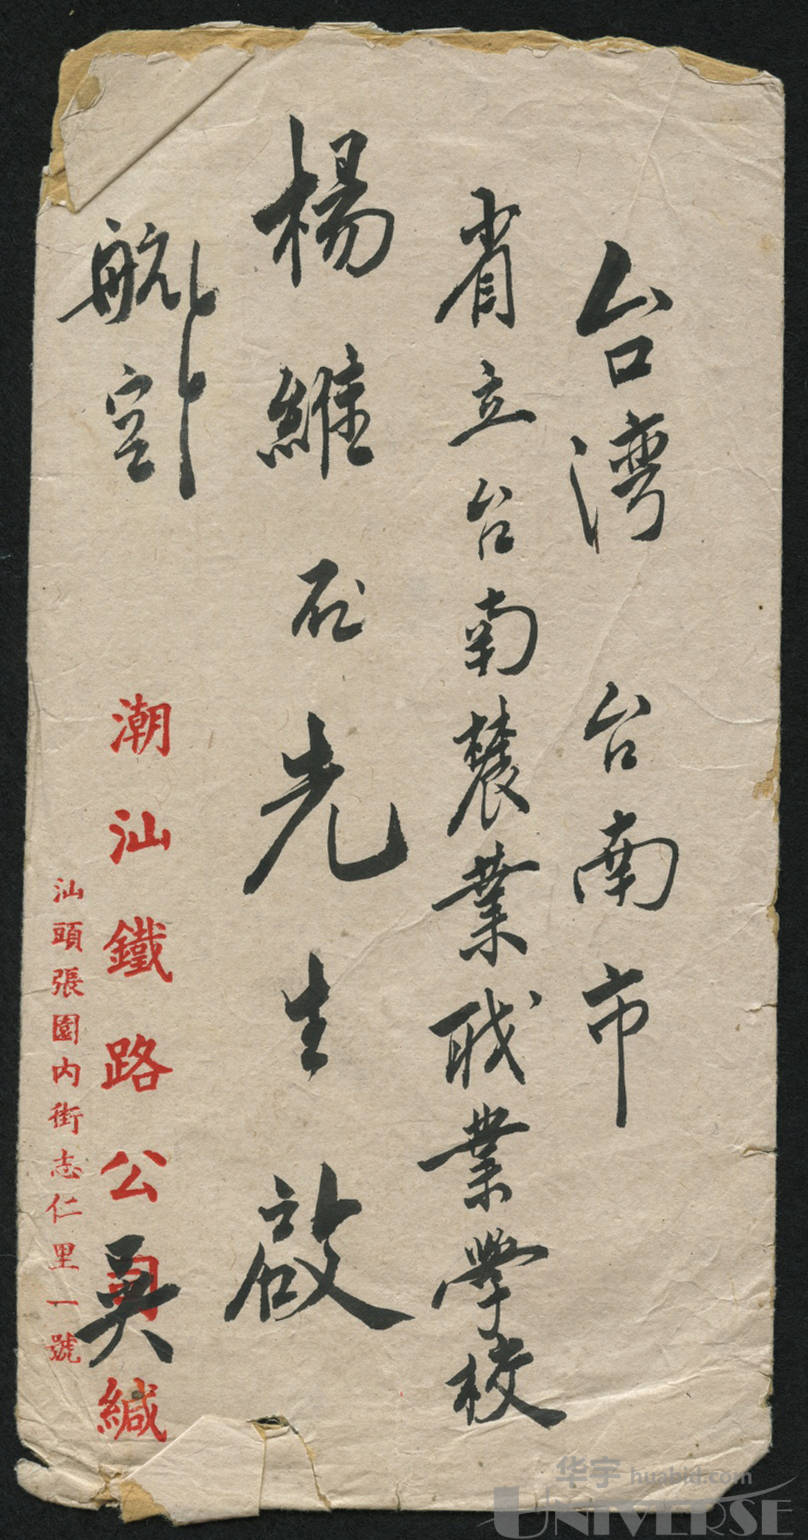 台湾 台南市
省立台南農業職業學校
楊維 先生啟
航空
潮汕鐵路公司緘
吳
汕頭張園內街志仁里一號
华宇 huabid.com
UNIVERSE